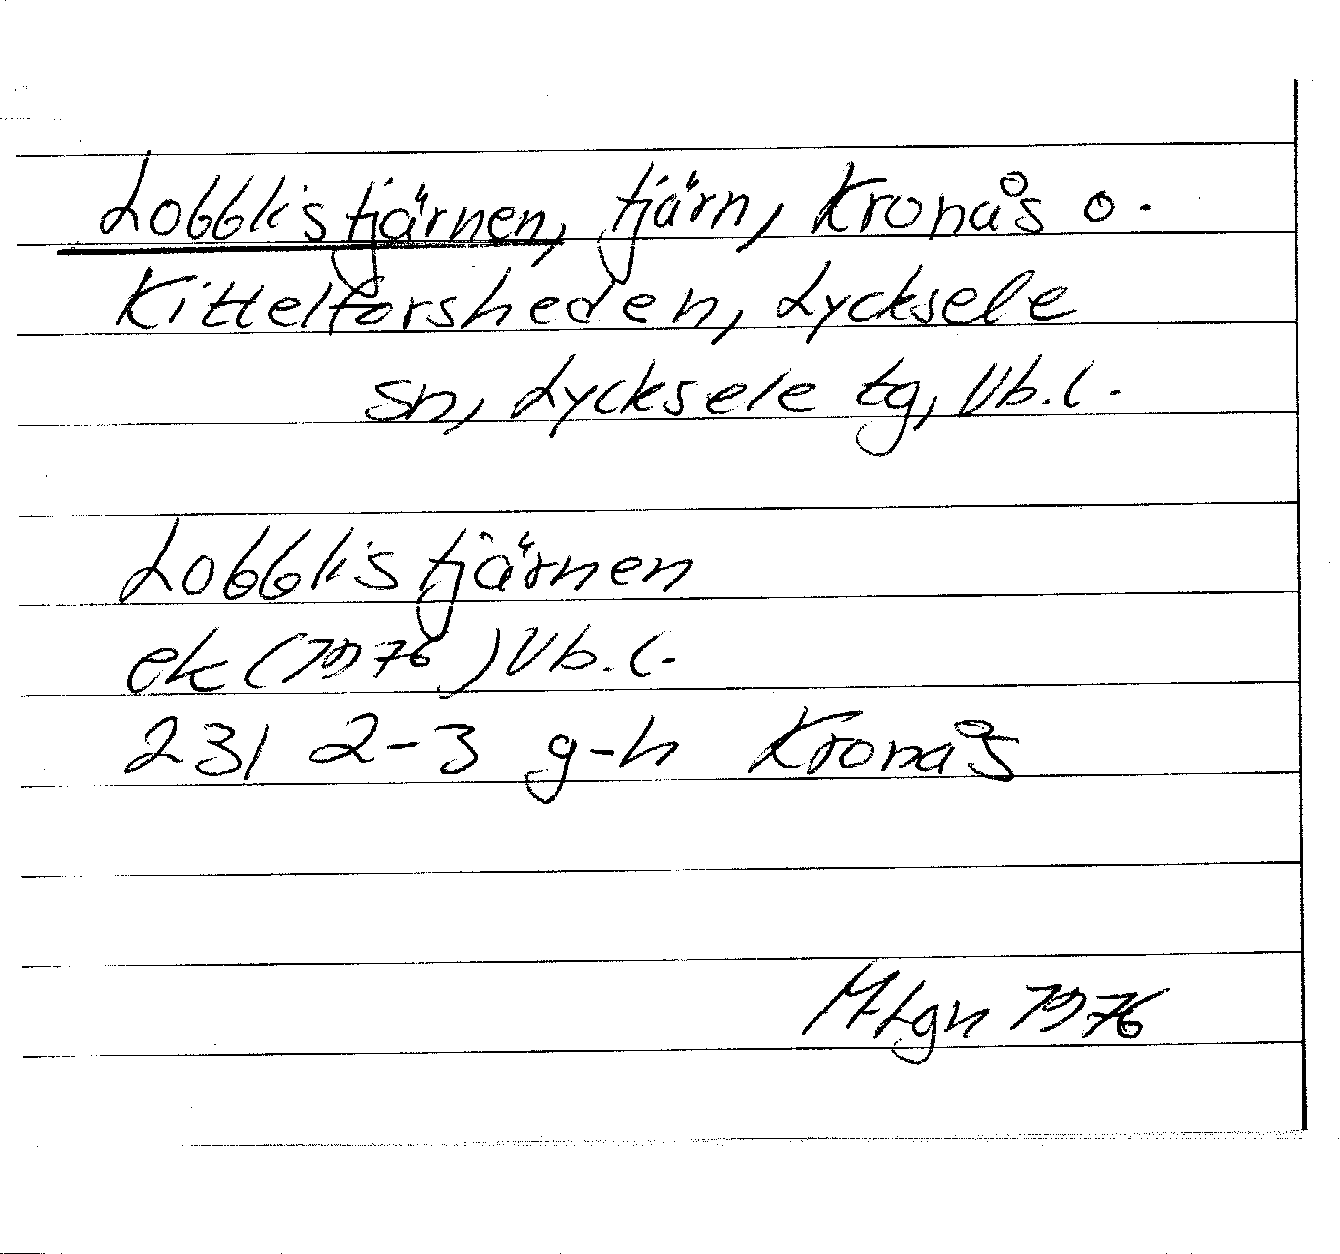 Lobblistjärnen, tjärn, Kronås o.
Kittelforsheden, Lycksele
sn, Lycksele tg, Vb.l.
Lobblistjärnen
ek (1976) Vb.l.
231 2-3 g-h Kronås
Htgn 1976